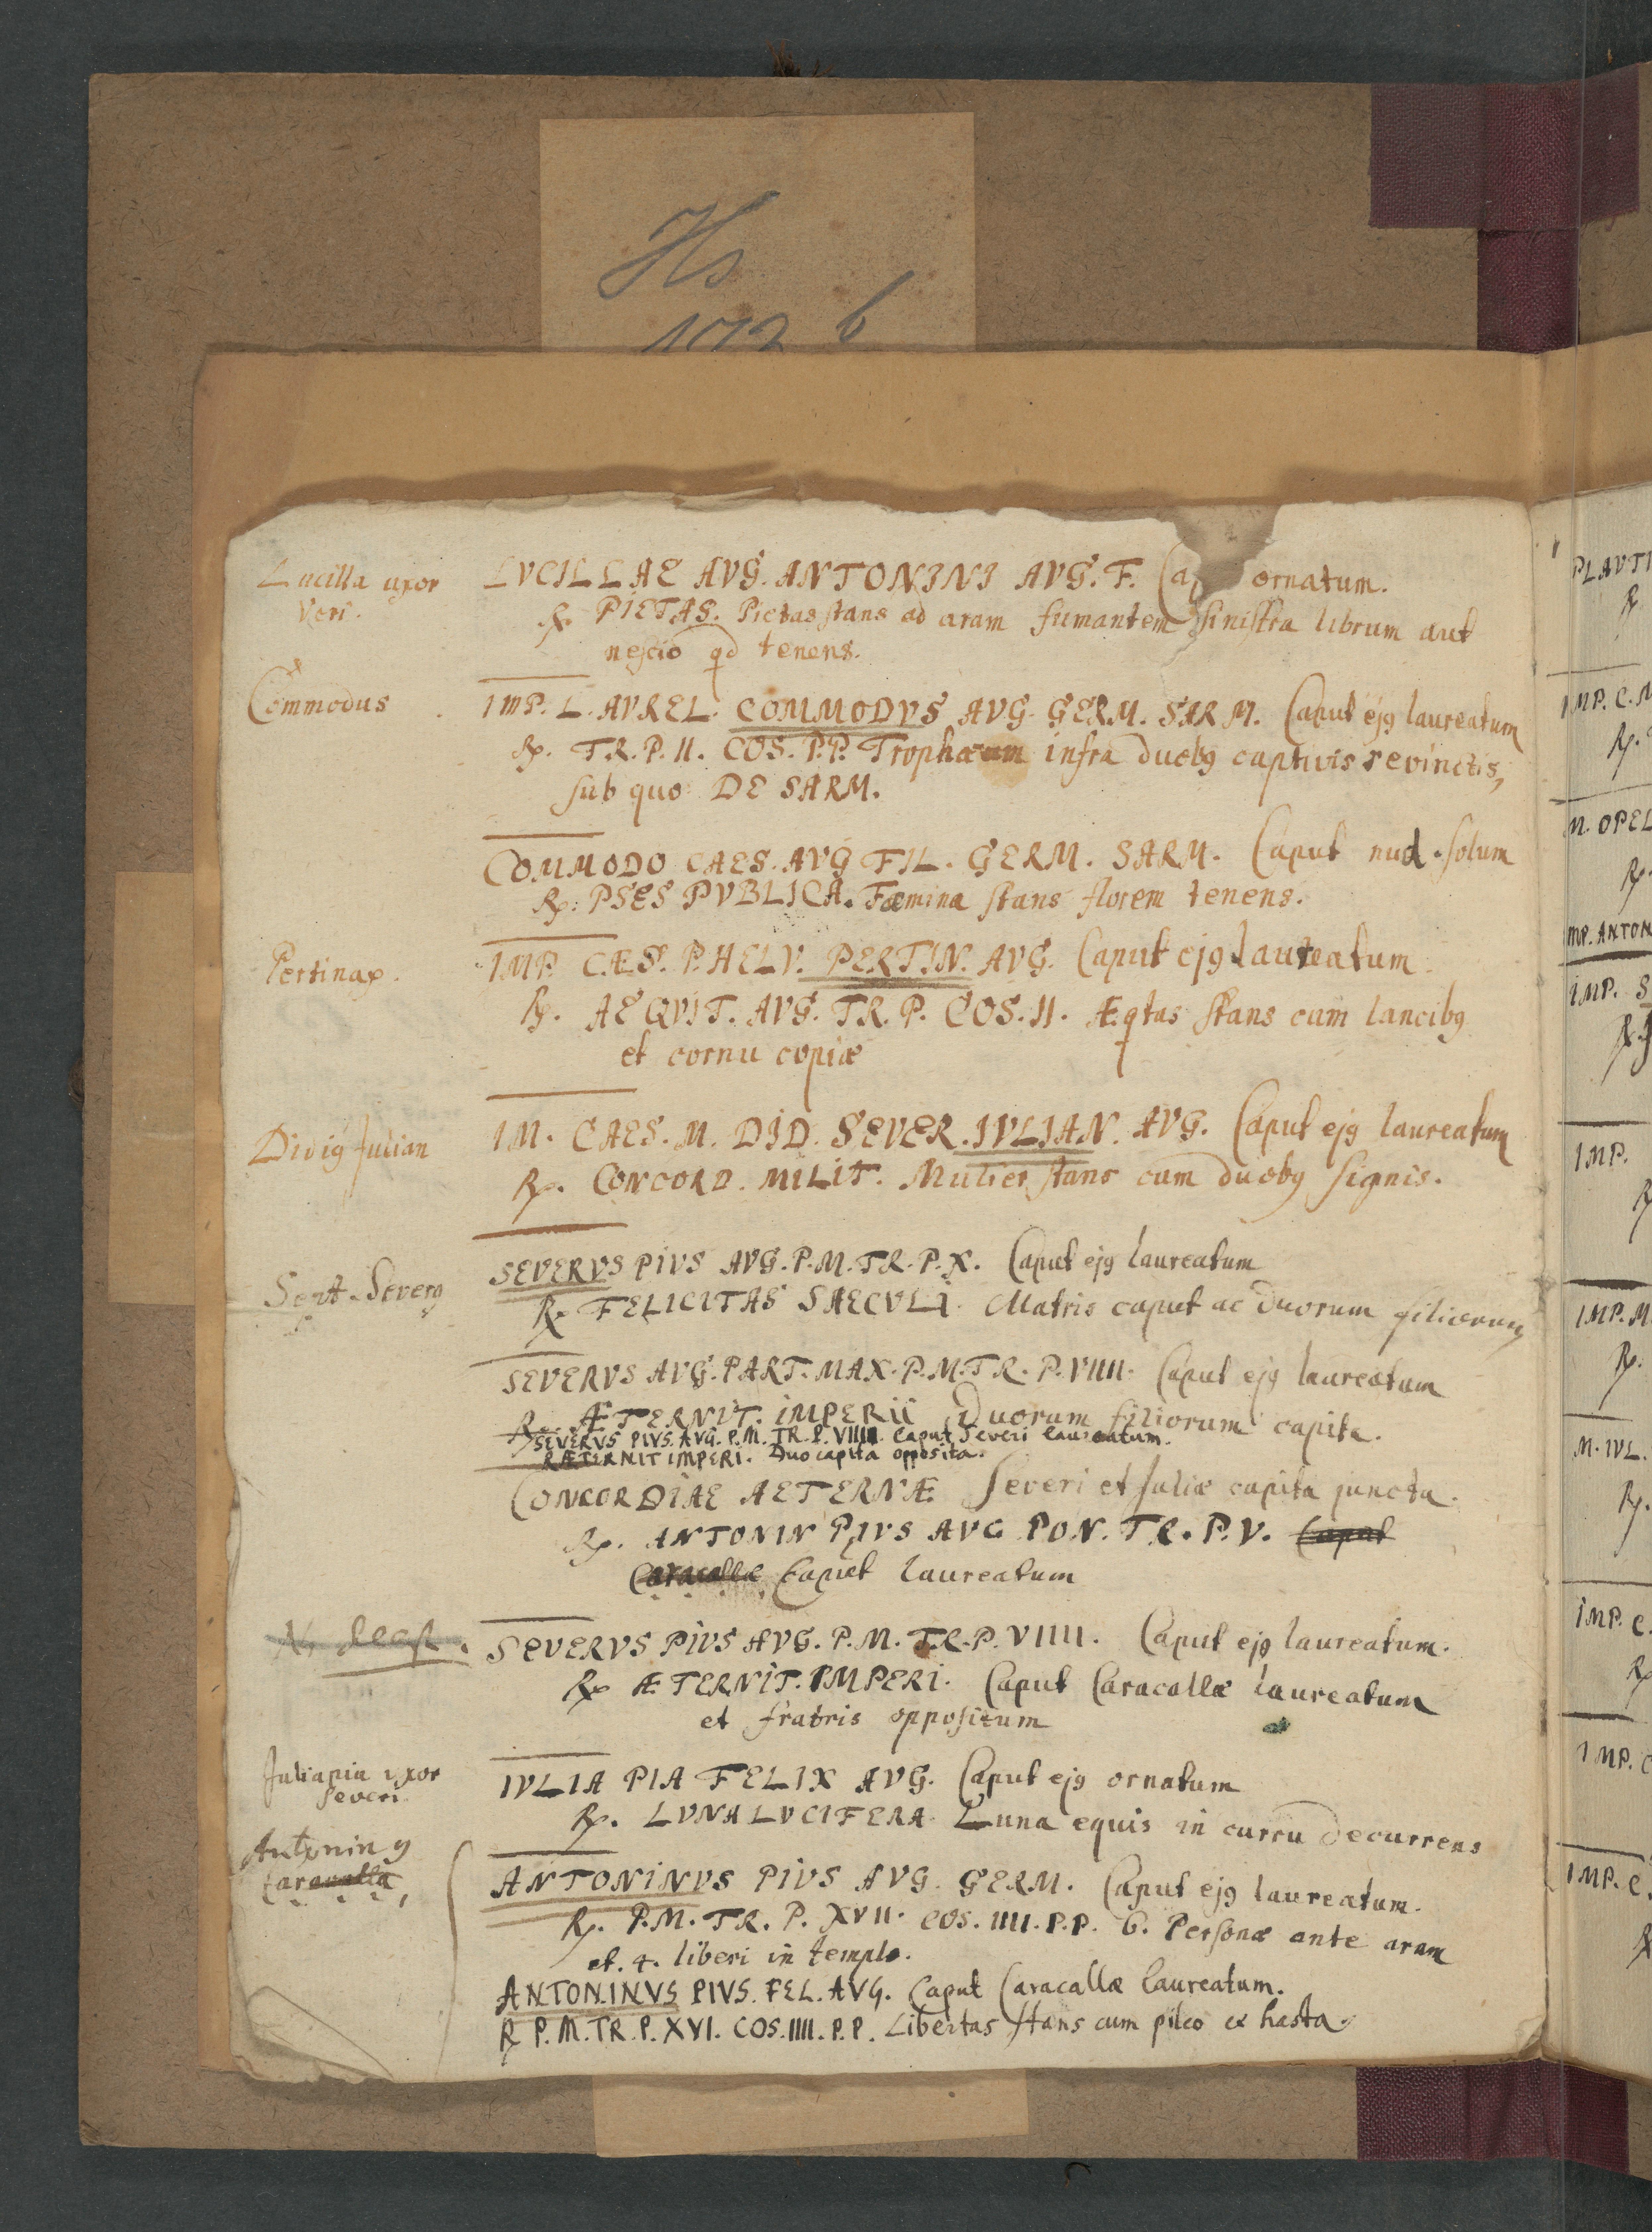 Hs
172 b
Lucilla uxor
Veri.
LVCILLAE AVG. ANTONINI AVG. F. Cap ornatum.
℞. PIETAS. Pietas stans ad aram fumantem sinistra librum aut
nescio qd tenens.
Commodus
IMP. L. AVREL. COMMODVS AVG. GERM. SARM. Caput ejꝰ laureatum
℞. TR. P. II. COS. P.P. Trophæum infra duobꝰ captivis revinctis,
sub quo DE SARM.
COMMODO CAES. AVG FIL. GERM. SARM. Caput nud. solum
℞: PSES PVBLICA. Fæmina stans florem tenens.
Pertinax.
IMP. CÆS. P. HELV. PERTIN. AVG. Caput ejꝰ laureatum
℞. AEQVIT. AVG. TR. P. COS. II. Æqtas stans cum lancibꝰ
et cornu copiæ
Didiꝰ Julian
IM. CAES. M. DID. SEVER. IVLIAN. AVG. Caput ejꝰ laureatum
℞. CONCORD. MILIT. Mulier stans cum duobꝰ signis.
Sept. Severꝰ
SEVERVS PIVS AVG. P. M. TR. P. X. Caput ejꝰ laureatum
℞. FELICITAS SAECVLI. Matris caput ac duorum filiorum
SEVERVS AVG. PART. MAX. P. M. TR. P. VIIII. Caput ejꝰ laureatum
℞. ÆTERNIT. IMPERII Duorum filiorum capita.
SEVERVS PIVS. AVG. P. M. TR. P. VIIII. Caput Severi laureatum.
℞ ÆTERNIT IMPERI. Duo capita opposita.
CONCORDIAE AETERNÆ Severi et Juliæ capita juncta.
℞. ANTONIN PIVS AVG PON. TR. P. V. Caput
Caracallæ Caput laureatum
SEVERVS PIVS AVG. P. M. TR. P. VIIII. Caput ejꝰ laureatum.
℞ ÆTERNIT. IMPERI. Caput Caracallæ laureatum
et fratris oppositum
Julia pia uxor
Severi.
IVLIA PIA FELIX AVG. Caput ejꝰ ornatum
℞. LVNA LVCIFERA. Luna equis in curru decurrens
Antoninꝰ
Caracalla
ANTONINVS PIVS AVG. GERM. Caput ejꝰ laureatum.
℞. P. M. TR. P. XVII. COS. IIII. P. P. 6. Personæ ante aram
et. 4. liberi in templo.
ANTONINVS PIVS. FEL. AVG. Caput Caracallæ laureatum.
℞ P. M. TR. P. XVI. COS. IIII. P. P. Libertas stans cum pileo & hasta.
PLAVTI
℞
IMP. C. M
℞.
M. OPEL
℞.
MP. ANTON
IMP. S
℞.
IMP.
℞
IMP. M
℞.
M. IVL.
℞.
IMP. C.
℞
IMP. C
IMP. C.
℞